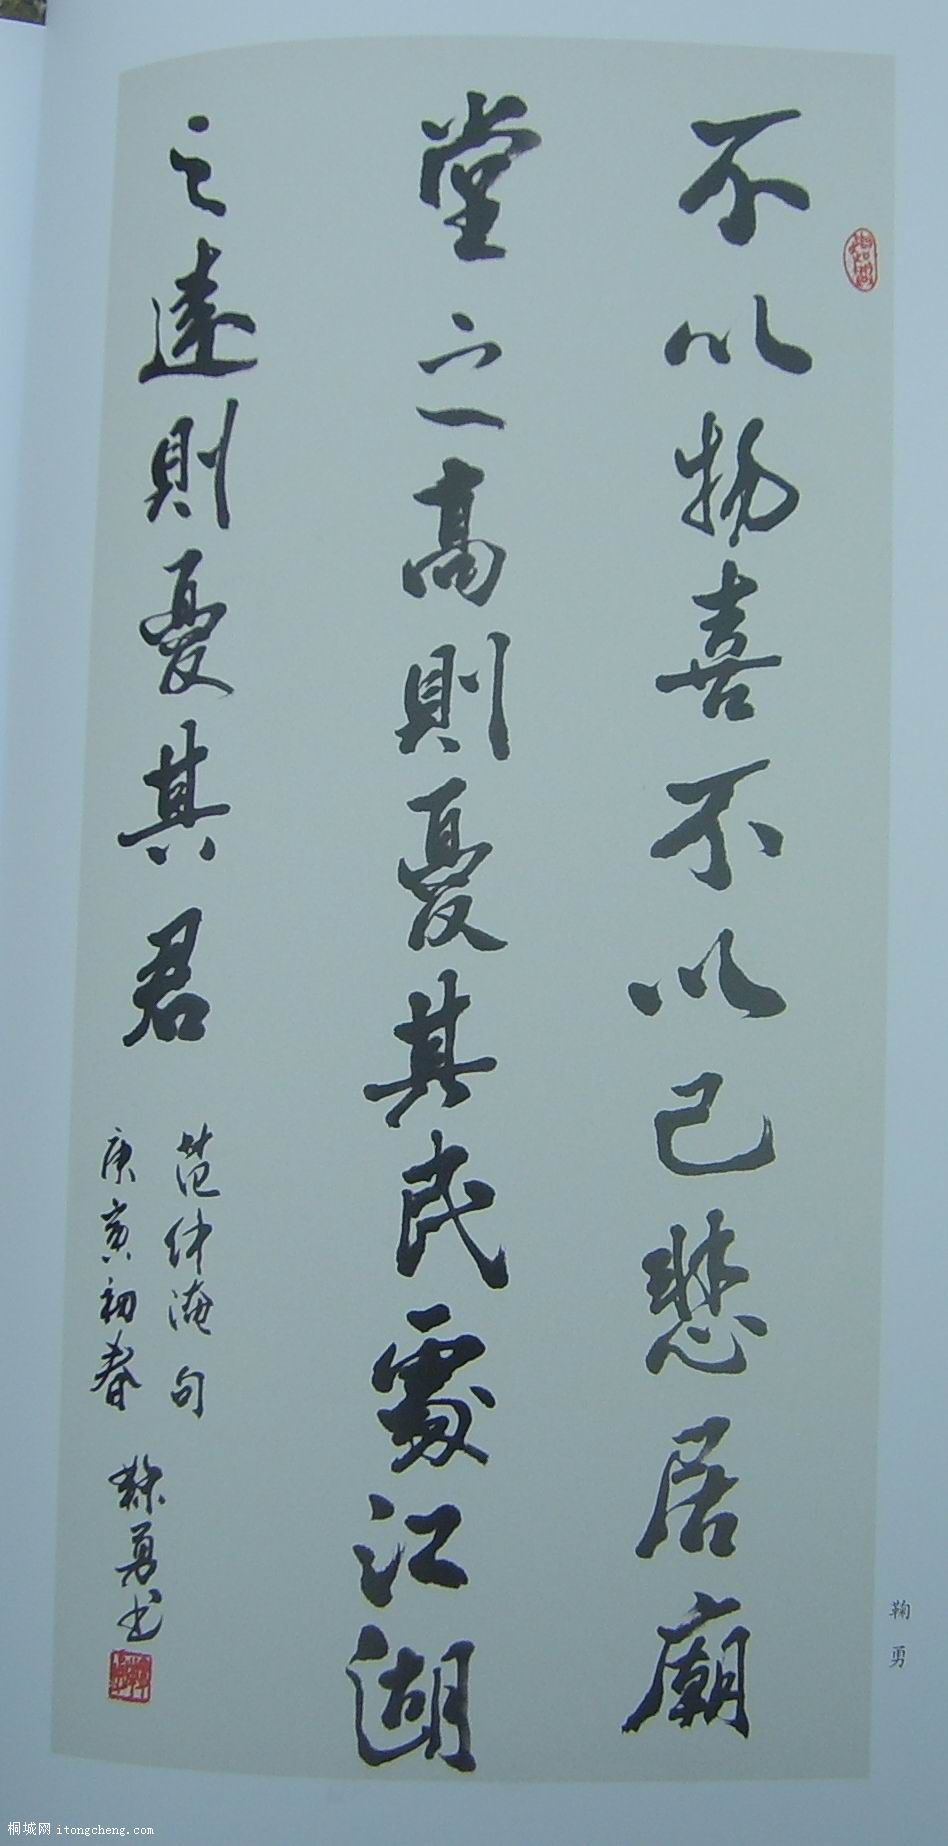 不以物喜不以己悲居廟
堂之高則憂其民處江湖
之遠則憂其君
范仲淹句
庚寅初春 鞠勇书
鞠勇
桐城网 itongcheng.com